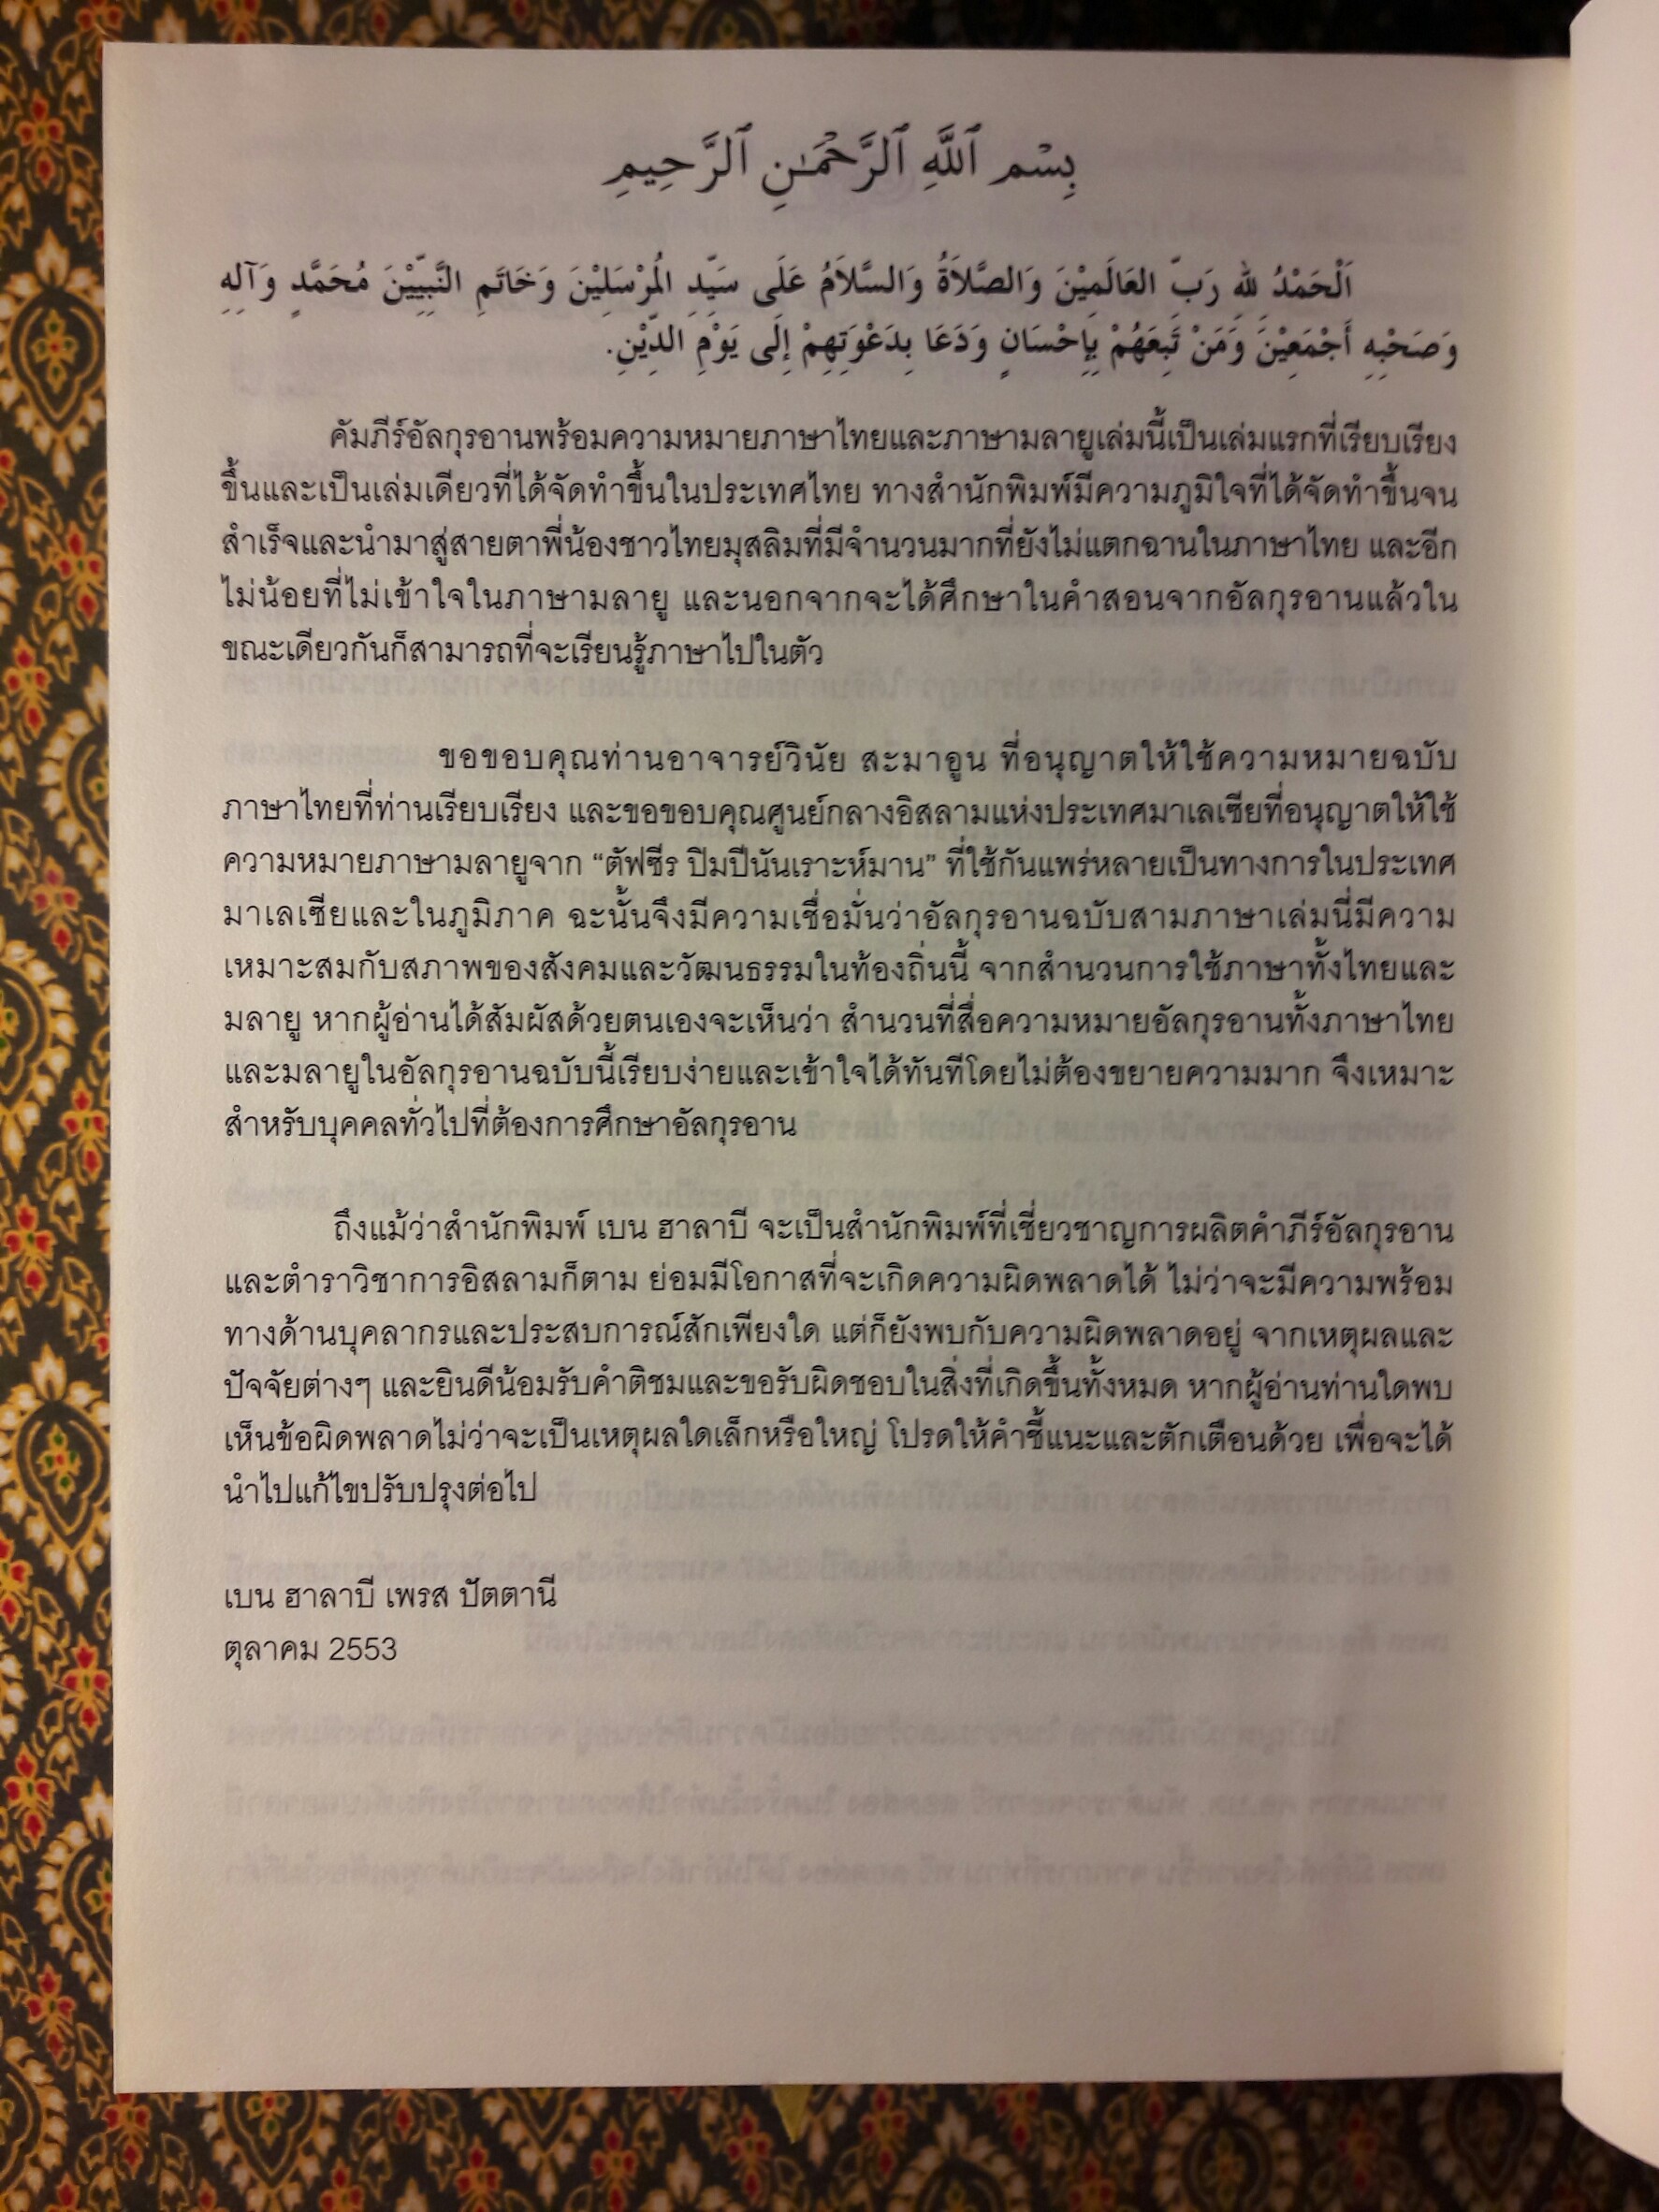 بِسْمِ ٱللَّهِ ٱلرَّحْمَـٰنِ ٱلرَّحِيمِ
اَلْحَمْدُ للهِ رَبِّ العَالَمِيْنَ وَالصَّلاَةُ وَالسَّلاَمُ عَلَى سَيِّدِ المُرْسَلِيْنَ وَخَاتَمِ النَّبِيِّيْنَ مُحَمَّدٍ وَآلِهِ
وَصَحْبِهِ أَجْمَعِيْنَ وَمَنْ تَبِعَهُمْ بِإِحْسَانٍ وَدَعَا بِدَعْوَتِهِمْ إِلَى يَوْمِ الدِّيْنِ.
คัมภีร์อัลกุรอานพร้อมความหมายภาษาไทยและภาษามลายูเล่มนี้เป็นเล่มแรกที่เรียบเรียง
ขึ้นและเป็นเล่มเดียวที่ได้จัดทำขึ้นในประเทศไทย ทางสำนักพิมพ์มีความภูมิใจที่ได้จัดทำขึ้นจน
สำเร็จและนำมาสู่สายตาพี่น้องชาวไทยมุสลิมที่มีจำนวนมากที่ยังไม่แตกฉานในภาษาไทย และอีก
ไม่น้อยที่ไม่เข้าใจในภาษามลายู และนอกจากจะได้ศึกษาในคำสอนจากอัลกุรอานแล้วใน
ขณะเดียวกันก็สามารถที่จะเรียนรู้ภาษาไปในตัว
ขอขอบคุณท่านอาจารย์วินัย สะมาอูน ที่อนุญาตให้ใช้ความหมายฉบับ
ภาษาไทยที่ท่านเรียบเรียง และขอขอบคุณศูนย์กลางอิสลามแห่งประเทศมาเลเซียที่อนุญาตให้ใช้
ความหมายภาษามลายูจาก “ตัฟซีร ปิมปีนันเราะห์มาน” ที่ใช้กันแพร่หลายเป็นทางการในประเทศ
มาเลเซียและในภูมิภาค ฉะนั้นจึงมีความเชื่อมั่นว่าอัลกุรอานฉบับสามภาษาเล่มนี่มีความ
เหมาะสมกับสภาพของสังคมและวัฒนธรรมในท้องถิ่นนี้ จากสำนวนการใช้ภาษาทั้งไทยและ
มลายู หากผู้อ่านได้สัมผัสด้วยตนเองจะเห็นว่า สำนวนที่สื่อความหมายอัลกุรอานทั้งภาษาไทย
และมลายูในอัลกุรอานฉบับนี้เรียบง่ายและเข้าใจได้ทันทีโดยไม่ต้องขยายความมาก จึงเหมาะ
สำหรับบุคคลทั่วไปที่ต้องการศึกษาอัลกุรอาน
ถึงแม้ว่าสำนักพิมพ์ เบน ฮาลาบี จะเป็นสำนักพิมพ์ที่เชี่ยวชาญการผลิตคำภีร์อัลกุรอาน
และตำราวิชาการอิสลามก็ตาม ย่อมมีโอกาสที่จะเกิดความผิดพลาดได้ ไม่ว่าจะมีความพร้อม
ทางด้านบุคลากรและประสบการณ์สักเพียงใด แต่ก็ยังพบกับความผิดพลาดอยู่ จากเหตุผลและ
ปัจจัยต่างๆ และยินดีน้อมรับคำติชมและขอรับผิดชอบในสิ่งที่เกิดขึ้นทั้งหมด หากผู้อ่านท่านใดพบ
เห็นข้อผิดพลาดไม่ว่าจะเป็นเหตุผลใดเล็กหรือใหญ่ โปรดให้คำชี้แนะและตักเตือนด้วย เพื่อจะได้
นำไปแก้ไขปรับปรุงต่อไป
เบน ฮาลาบี เพรส ปัตตานี
ตุลาคม 2553